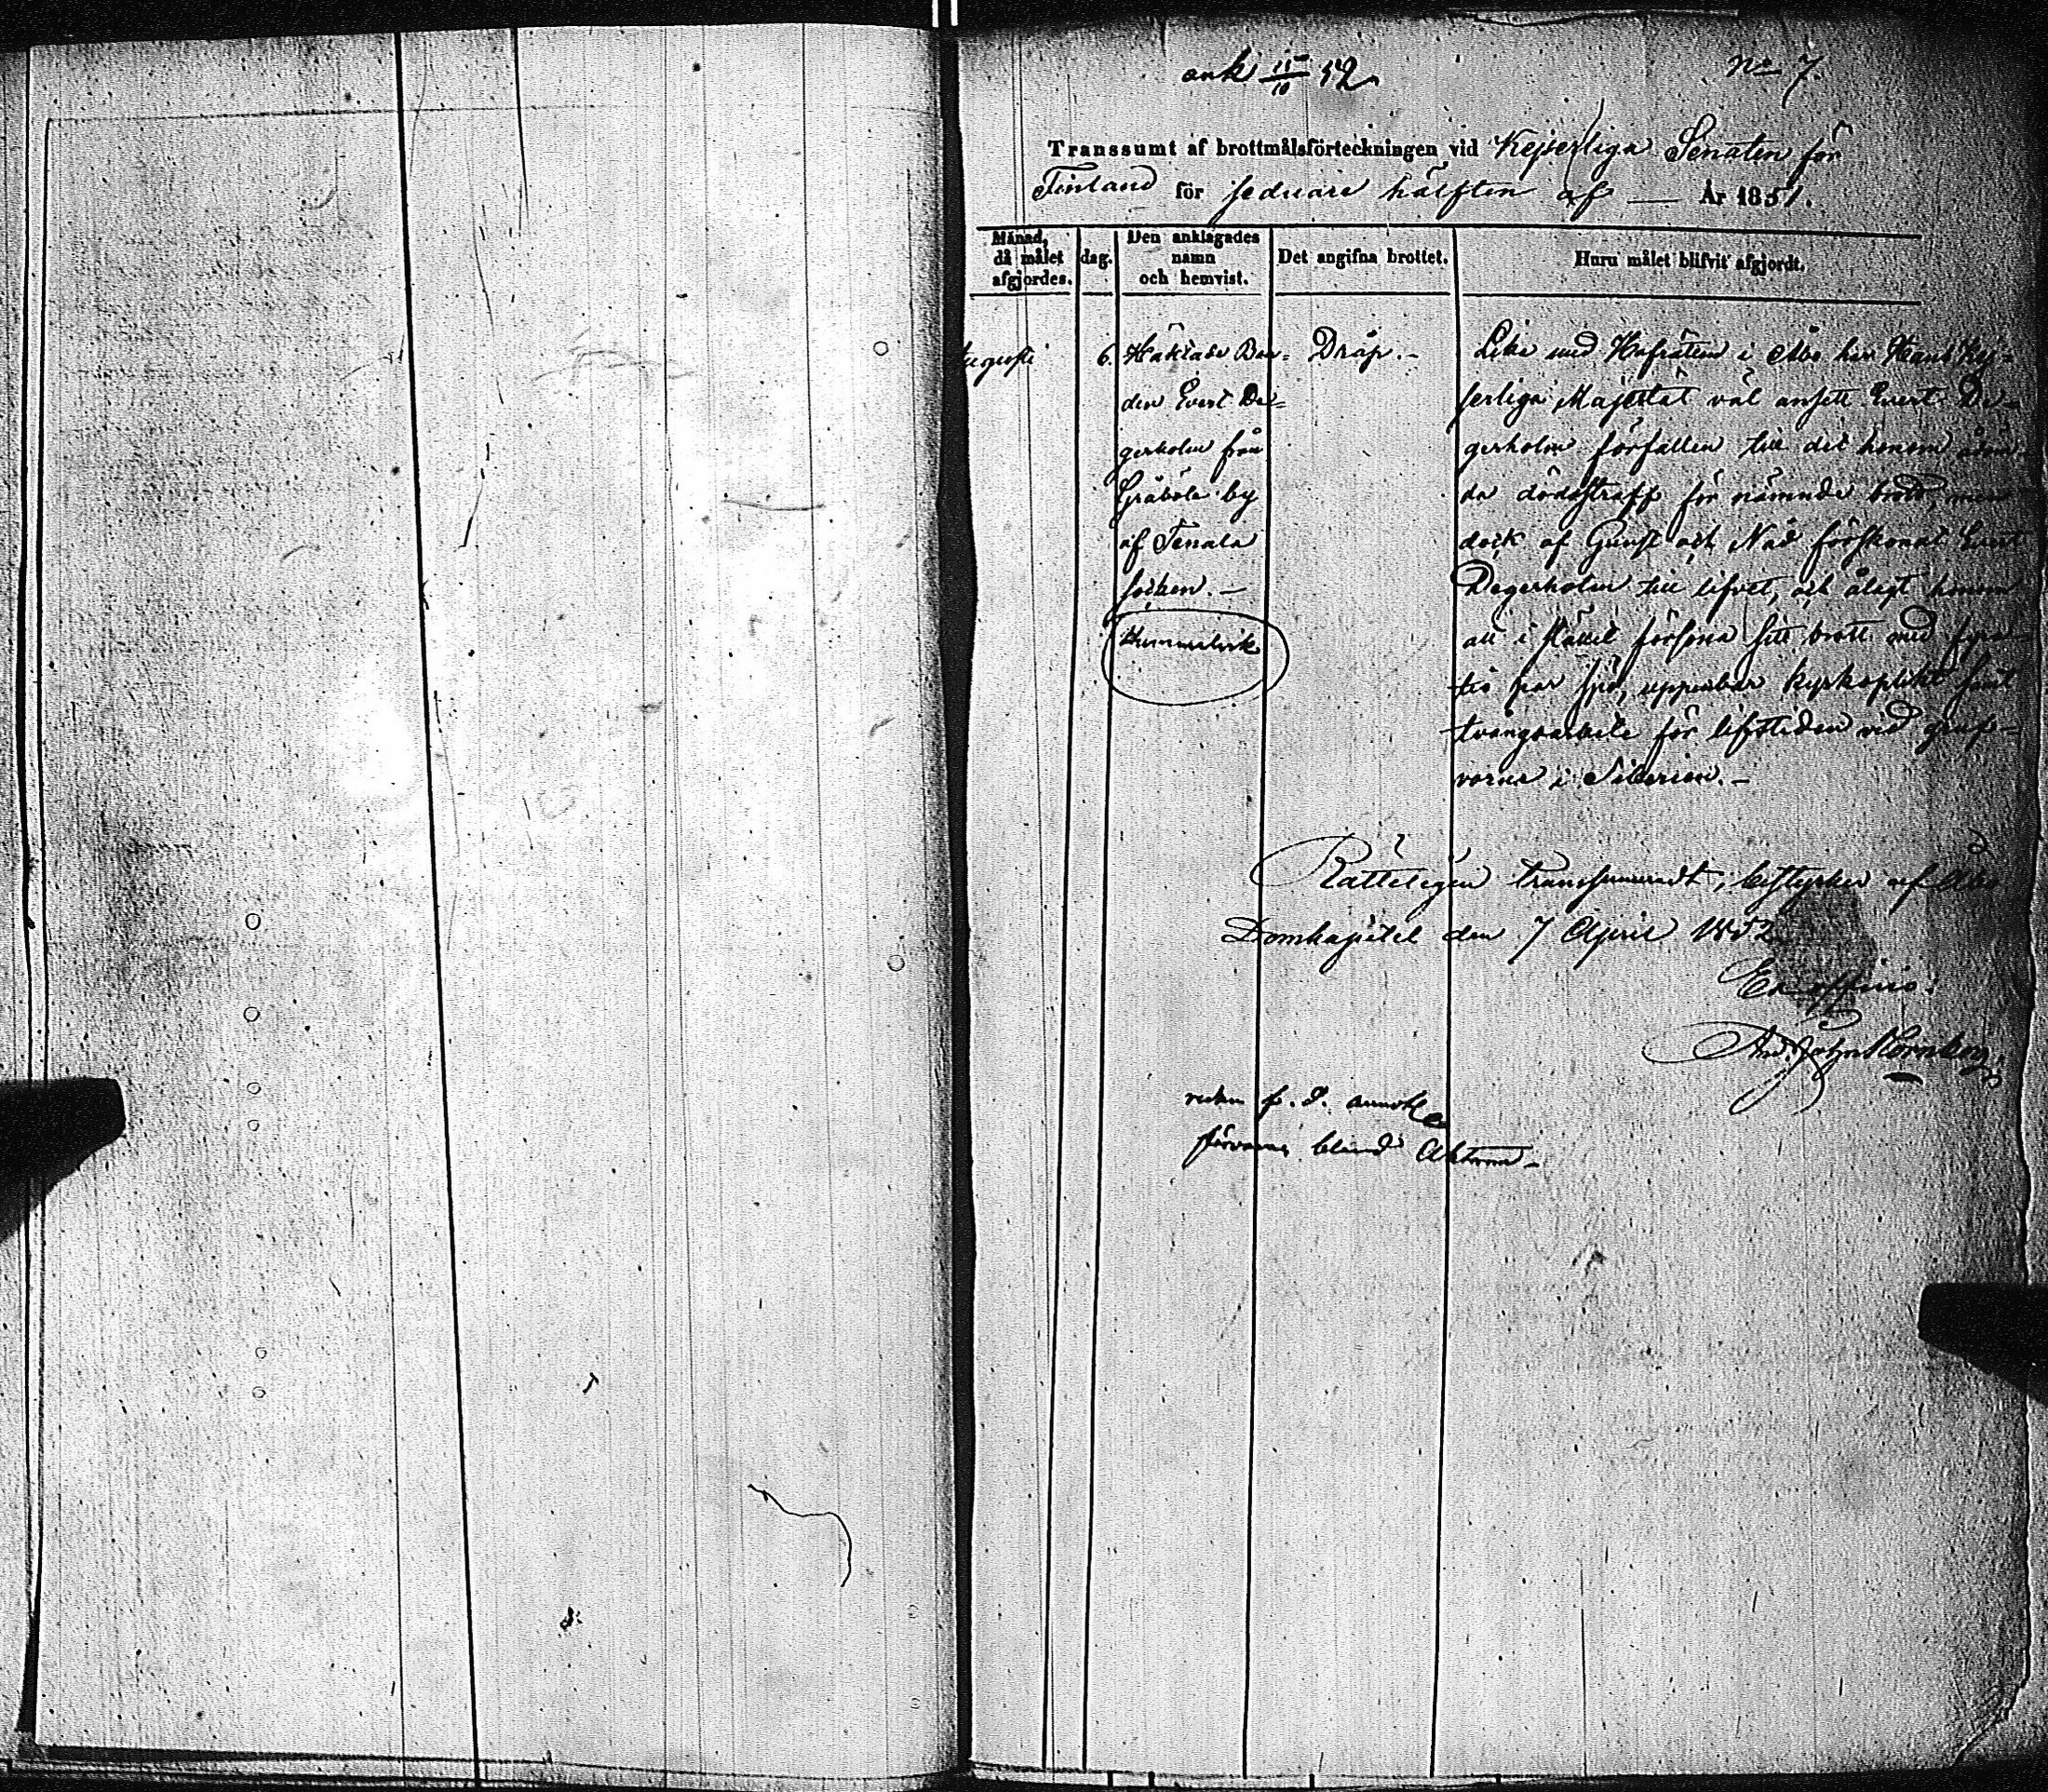 ank 11/10 52
No 7.
Transsumt af brottmålsförteckningen vid Kejserliga Senaten för
Finland för sednare hälften af — År 1851.
Månad, då målet afgjordes.
dag.
Den anklagades namn och hemvist.
Det angifna brottet.
Huru målet blifvit afgjordt.
Augusti
6.
Häktade Bon-
den Evert De-
gerholm från
Gräbôle by
af Tenala
socken. —
Dråp. —
Lika med Hofrätten i Åbo har Hans Kej-
serliga Majestät väl ansett Evert De-
gerholm förfallen till det honom ådöm-
da dödsstraff för nämnde brott, men
dock af Gunst och Nåd förskonat Evert
Degerholm till lifvet, och ålagt honom
att i stället försona sitt brott med fyra-
tio par spö, uppenbar kyrkoplikt samt
tvångsarbete för lifstiden vid gruf-
vorna i Siberien. —
Rätteligen transsumeradt, bestyrker af Åbo
Domkapitel den 7 April 1852
Ex officio:
And. Joh:n
förvaras bland Akterna —